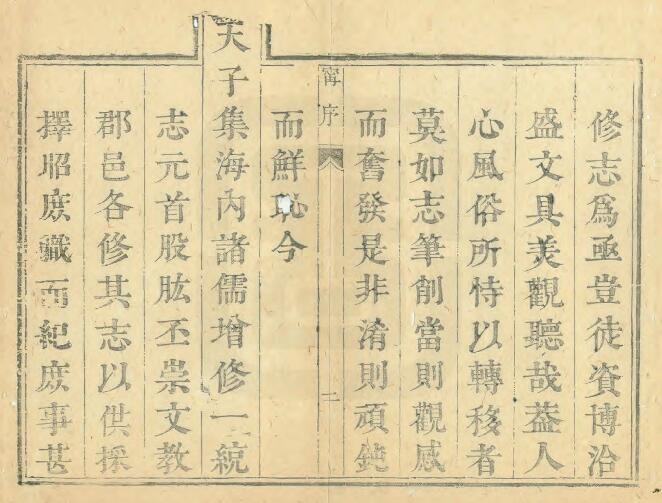 修志爲亟豈徒資博洽
盛文具美觀聽哉葢人
心風俗所恃以轉移者
莫如志筆削當則觀感
而奮發是非淆則頑鈍
甯序
二
而鮮恥今
天子集海內諸儒增修一統
志元首股肱丕崇文教
郡邑各修其志以供採
擇昭庶職而紀庶事甚